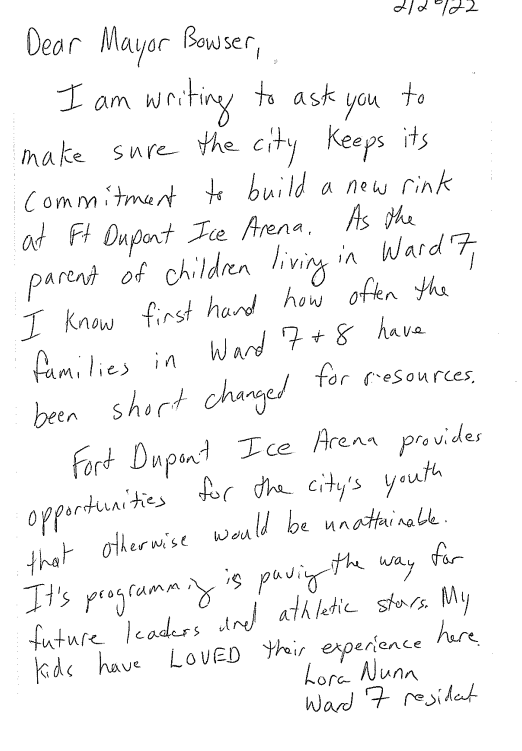 Dear Mayor Bowser,
I am writing to ask you to
make sure the city keeps its
commitment to build a new rink
at Ft Dupont Ice Arena. As the
parent of children living in Ward 7,
I know first hand how often the
families in Ward 7 + 8 have
been short changed for resources.
Fort Dupont Ice Arena provides
opportunities for the city's youth
that otherwise would be unattainable.
It's programming is paving the way for
future leaders and athletic stars. My
kids have LOVED their experience here.
Lora Nunn
Ward 7 resident